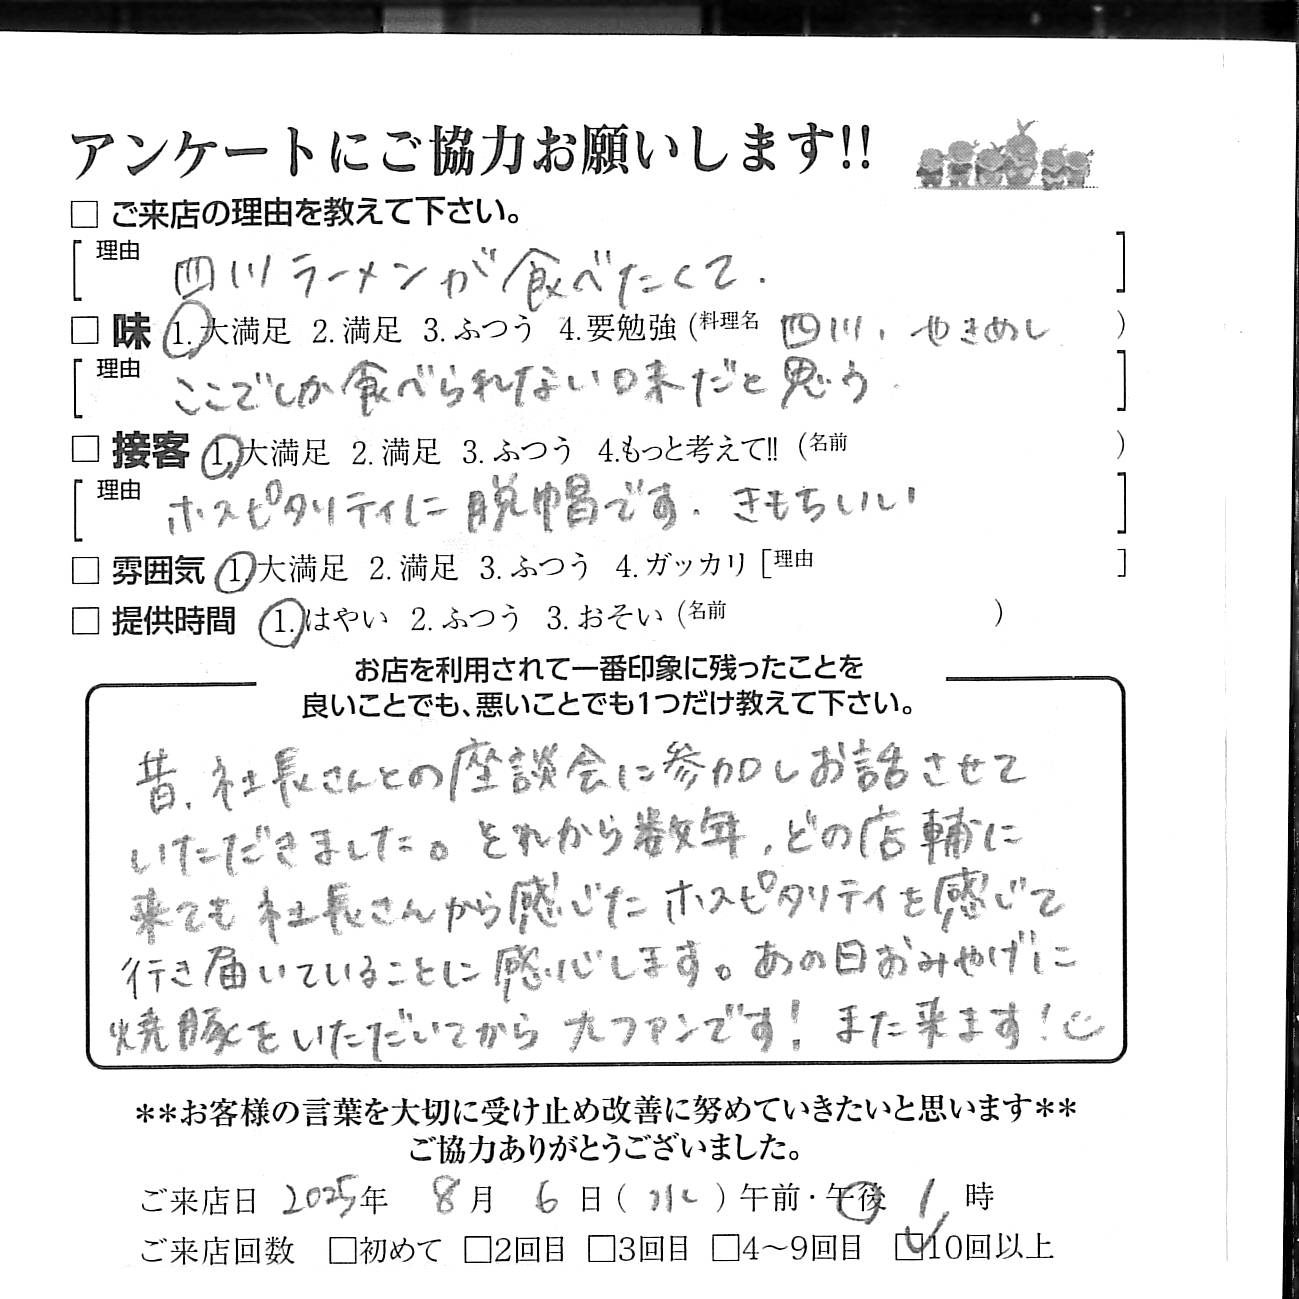 アンケートにご協力お願いします!!
□ ご来店の理由を教えて下さい。
[理由 四川ラーメンが食べたくて. ]
□ 味 1.大満足 2.満足 3.ふつう 4.要勉強 (料理名 四川、やきめし )
[理由 ここでしか食べられない味だと思う. ]
□ 接客 1.大満足 2.満足 3.ふつう 4.もっと考えて!! (名前 )
[理由 ホスピタリティに脱帽です. きもちいい ]
□ 雰囲気 1.大満足 2.満足 3.ふつう 4.ガッカリ [理由 ]
□ 提供時間 1.はやい 2.ふつう 3.おそい (名前 )
お店を利用されて一番印象に残ったことを
良いことでも、悪いことでも1つだけ教えて下さい。
昔、社長さんとの座談会に参加しお話させて
いただきました。それから数年、どの店輔に
来ても社長さんから感じたホスピタリティを感じて
行き届いていることに感心します。あの日おみやげに
焼豚をいただいてから大ファンです! また来ます!
**お客様の言葉を大切に受け止め改善に努めていきたいと思います**
ご協力ありがとうございました。
ご来店日 2025年 8月 6日(水) 午前・午後 1時
ご来店回数 □初めて □2回目 □3回目 □4〜9回目 ☑10回以上